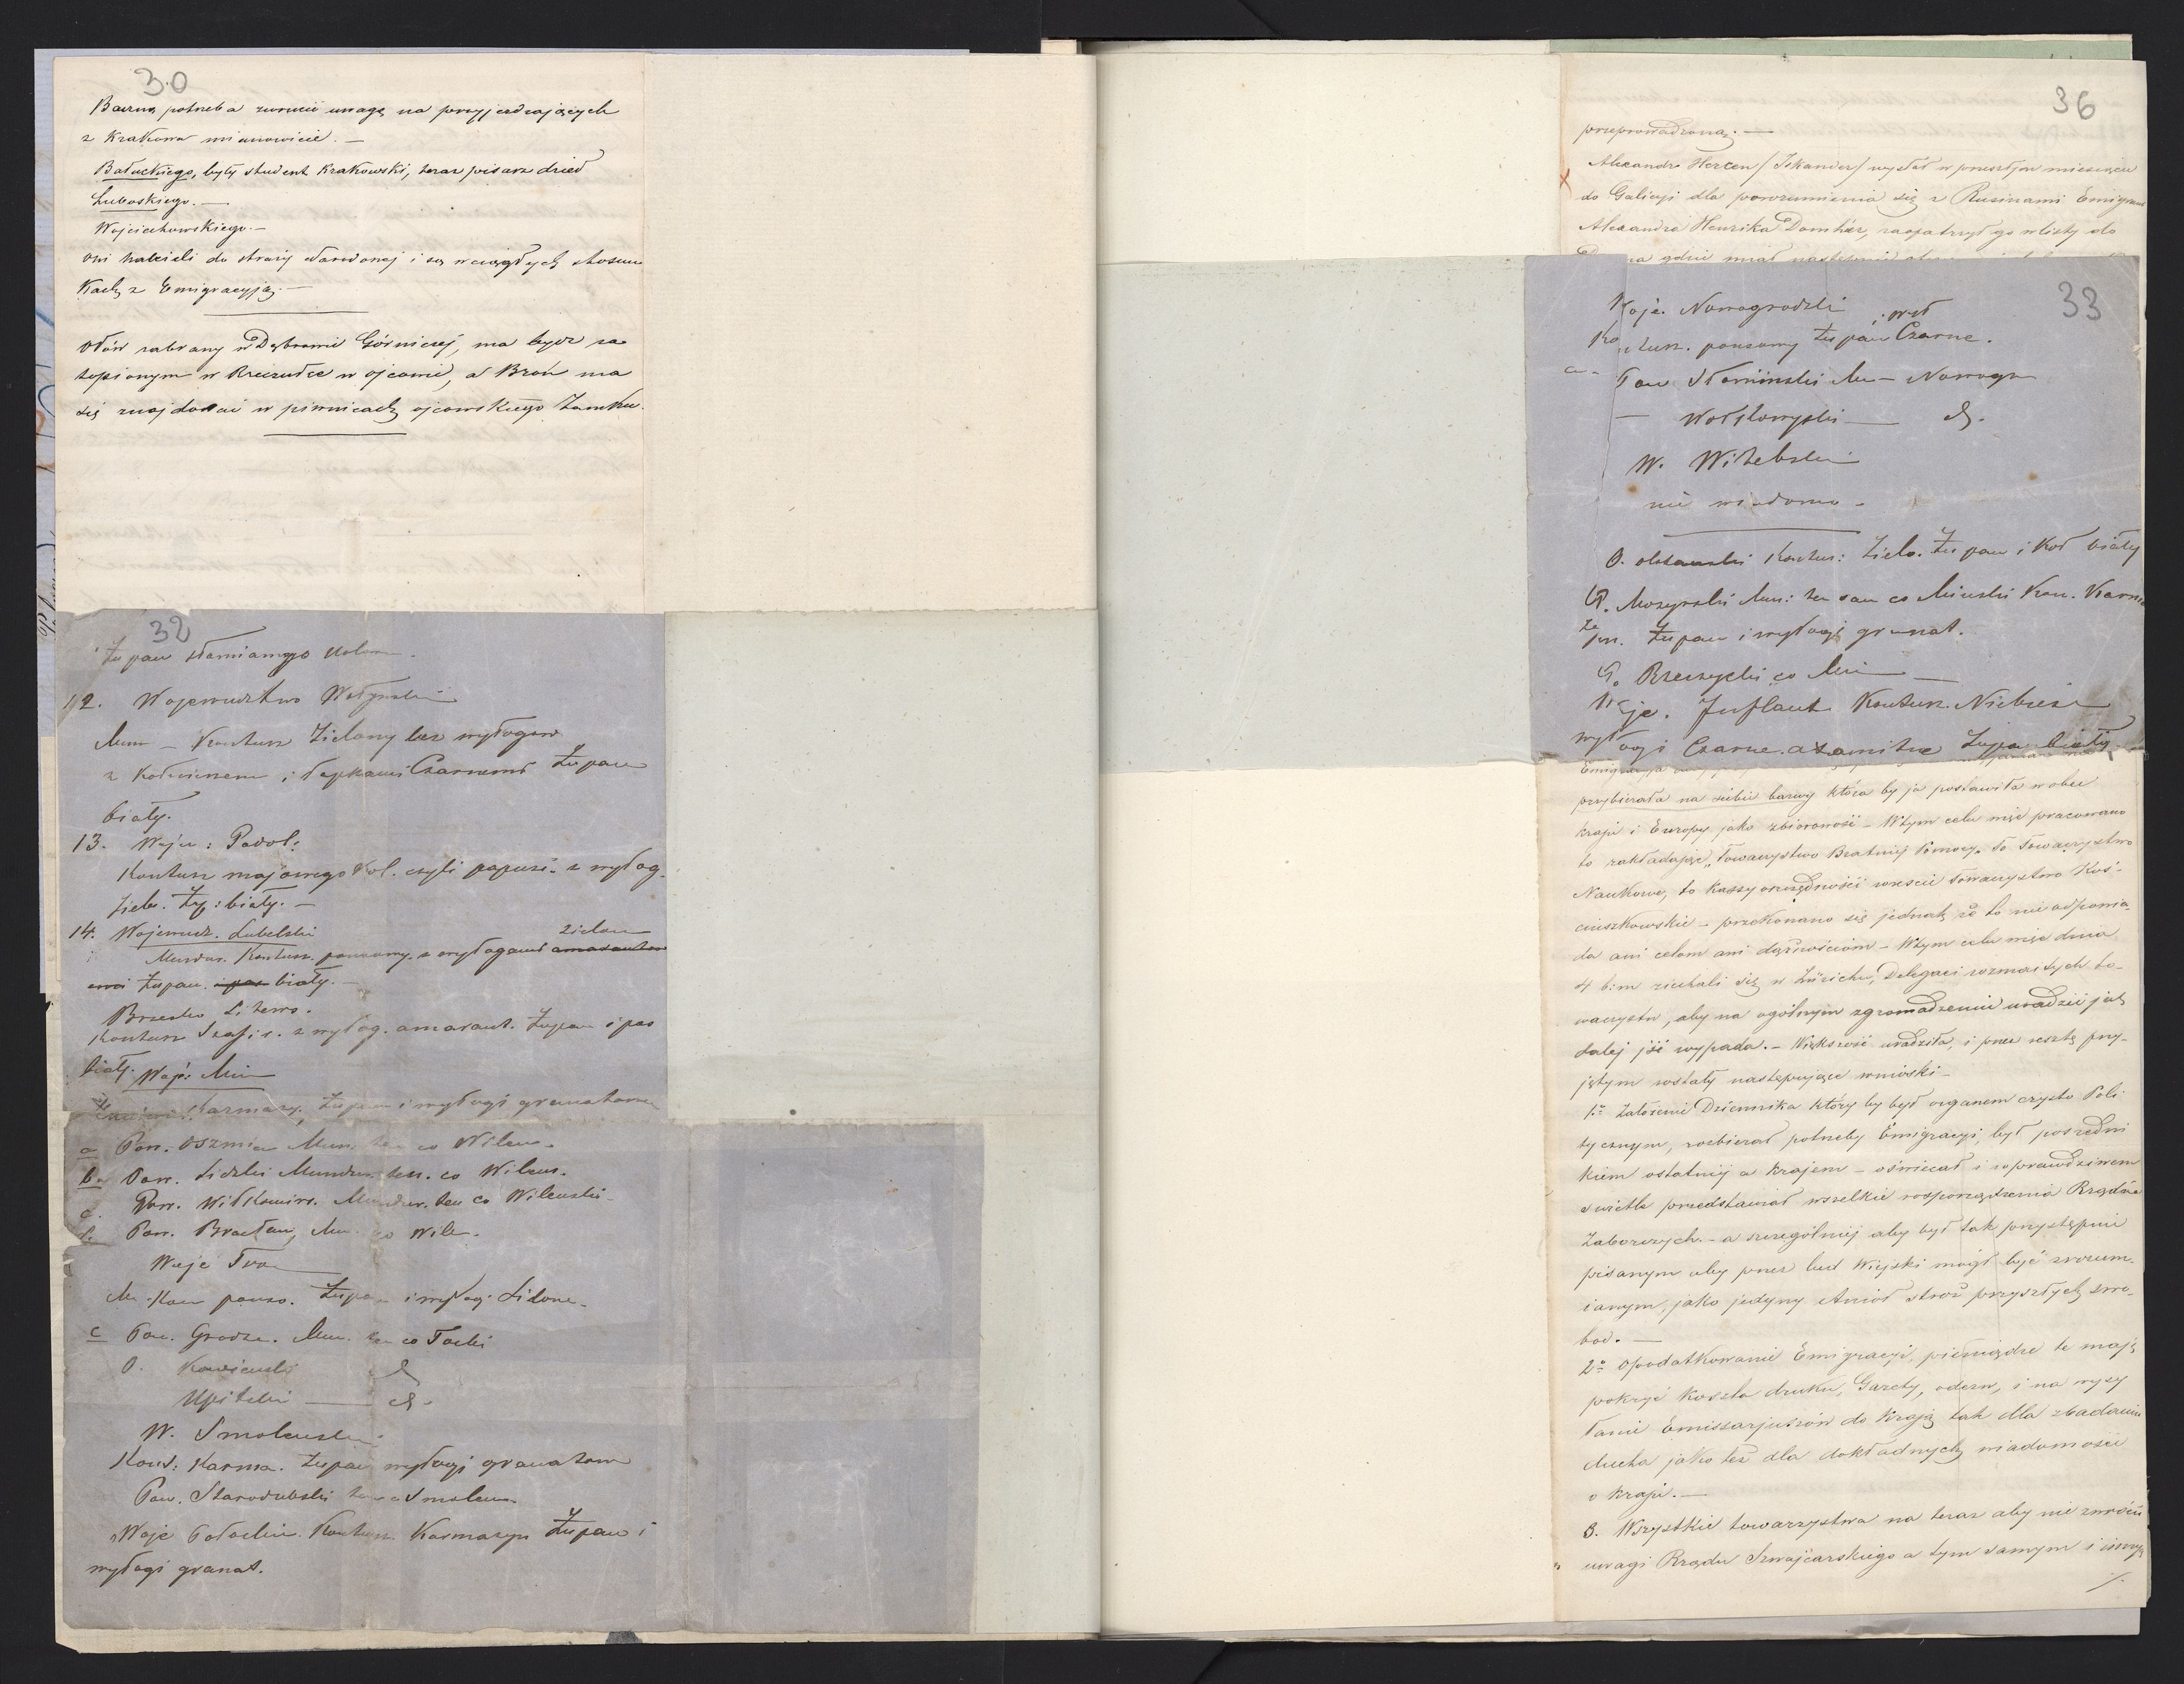 30
Baczną potrzeba zwrócić uwagę na przyjezdzających
z Krakowa mianowicie. —
Bałuckiego, były student Krakowski, teraz pisarz dzieł
Luboskiego. —
Wojciechowskiego. —
Oni należeli do straży narodowej i są w ciągłych stosun
kach z Emigracyją. —
Ołów zabrany w Dąbrowie Górniczej, ma bydz za
topionym w Rzeczułce w ojcowie, a Broń ma
się znajdować w piwnicach ojcowskiego Zamku.
32
Żupan słomianego kolo
12. Wojewudztwo Wołyński
Mun — Kontusz Zielony bez wyłogów
z Kołnierzem i łapkami Czarnemi Żupan
biały.
13. Woje: Podol:
Kontusz majowego Kol. czyli papuzi. z wyłog.
Zielo. Żup: biały. —
14. Wojewudz. Lubelski
Mundur. Kontusz. ponsowy. z wyłogami amarantow zielon
emi Żupan. i pas biały. —
Brzesko Litews.
Kontusz Szafir. z wyłog. amarant. Żupan i pas
biały. Woje: Min
Karmazy. Żupan i wyłogi granatowe
a Pow. Oszmian Mun. ten co Wilen.
b. Pow. Lidzki Mundur. ten. co Wilens.
c. Pow. Wiłkomirs. Mundur. ten co Wilenski.
d. Pow. Bracław, Mun. co Wile.
Woje Tro
Mu. Kon ponso. Żupan i wyłog. Zielone.
c Pow. Grodze. Mun. ten co Trocki
P. Kowienski d
Upitski — d.
W. Smolenski
Kont: Karma. Żupan wyłogi granatow
Pow. Starodubski ten co Smolens.
Woje Połockie. Kontusz Karmazyn Żupan i
wyłogi granat.
36
przeprowadzoną. —
Alexandr Hercen /Iskander/ wysłał w przeszłym miesiącu
do Galicyi dla porozumienia się z Rusinami Emigran
Alexandra Henrika Domhér, zaopatrzył go w listy do
33
Woje. Nowogrodzki
Kontusz. ponsowy Żupan i wył Czarne.
Pow Słonimski Mu — Nowogr
— Wołkowyski — d.
W. Witebski
nie wiadomo —
P. olszanski Kontus: Zielo. Żupan i Koł biały
P. Mozyrski Mun: ten sam co Minski Kon. Karma
zyn. Żupan i wyłogi granat.
P. Rzeczycki co Min —
Woje. Inflant Kontusz. Niebiesk
wyłogi Czarne. axamitne Żupan biały.
przybierała na siebie barwy która by ją postawiła wobec
kraju i Europy jako zbiorowość — W tym celu więc pracowano
to zakładając „Towarzystwo Bratniej Pomocy„ to Towarzystwo
Naukowe, to Kassy oszczędności wreszcie Towarzystwo Koś-
ciuszkowskie — przekonano się jednak że to nie odpowia-
da ani celom ani dążnościom — W tym celu więc dnia
4 b:m zjechali się w Zürichu, Delegaci rozmaitych to-
warzystw, aby na ogólnym zgromadzeniu uradzić jak
dalej jść wypada. — Większość uradziła, i przez resztę przy-
jętym zostały następujące wnioski —
1o Założenie Dziennika który by był organem czysto Poli
tycznym, rozbierał potrzeby Emigracyi, był pośredni
kiem ostatniej a krajem — oświecał i w prawdziwem
świetle przedstawiał wszelkie rosporządzenia Rządów
Zaborczych. — a szczególniej aby był tak przystępnie
pisanym aby przez lud Wiejski mógł być zrozum-
ianym, jako jedyny Anioł stróż przyszłych swo-
bod. —
2o Opodatkowanie Emigracyi, pieniądze te mają
pokryć koszta druku, Gazety, odezw, i na wysy
łanie Emissarjuszów do Kraju tak dla zbadania
ducha jako też dla dokładnych wiadomości
o kraju. —
3. Wszystkie towarzystwa na teraz aby nie zwrócić
uwagi Rządu Szwajcarskiego a tym samym i innych